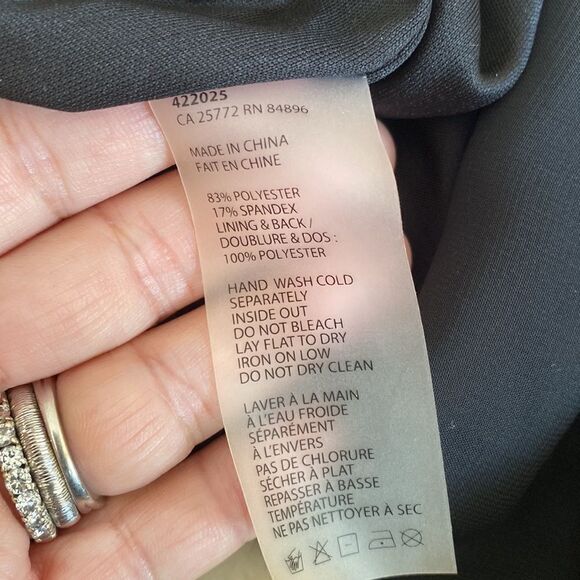 422025
CA 25772 RN 84896
MADE IN CHINA
FAIT EN CHINE
83% POLYESTER
17% SPANDEX
LINING & BACK /
DOUBLURE & DOS :
100% POLYESTER
HAND WASH COLD
SEPARATELY
INSIDE OUT
DO NOT BLEACH
LAY FLAT TO DRY
IRON ON LOW
DO NOT DRY CLEAN
LAVER À LA MAIN
À L'EAU FROIDE
SÉPARÉMENT
À L'ENVERS
PAS DE CHLORURE
SÉCHER À PLAT
REPASSER À BASSE
TEMPÉRATURE
NE PAS NETTOYER À SEC